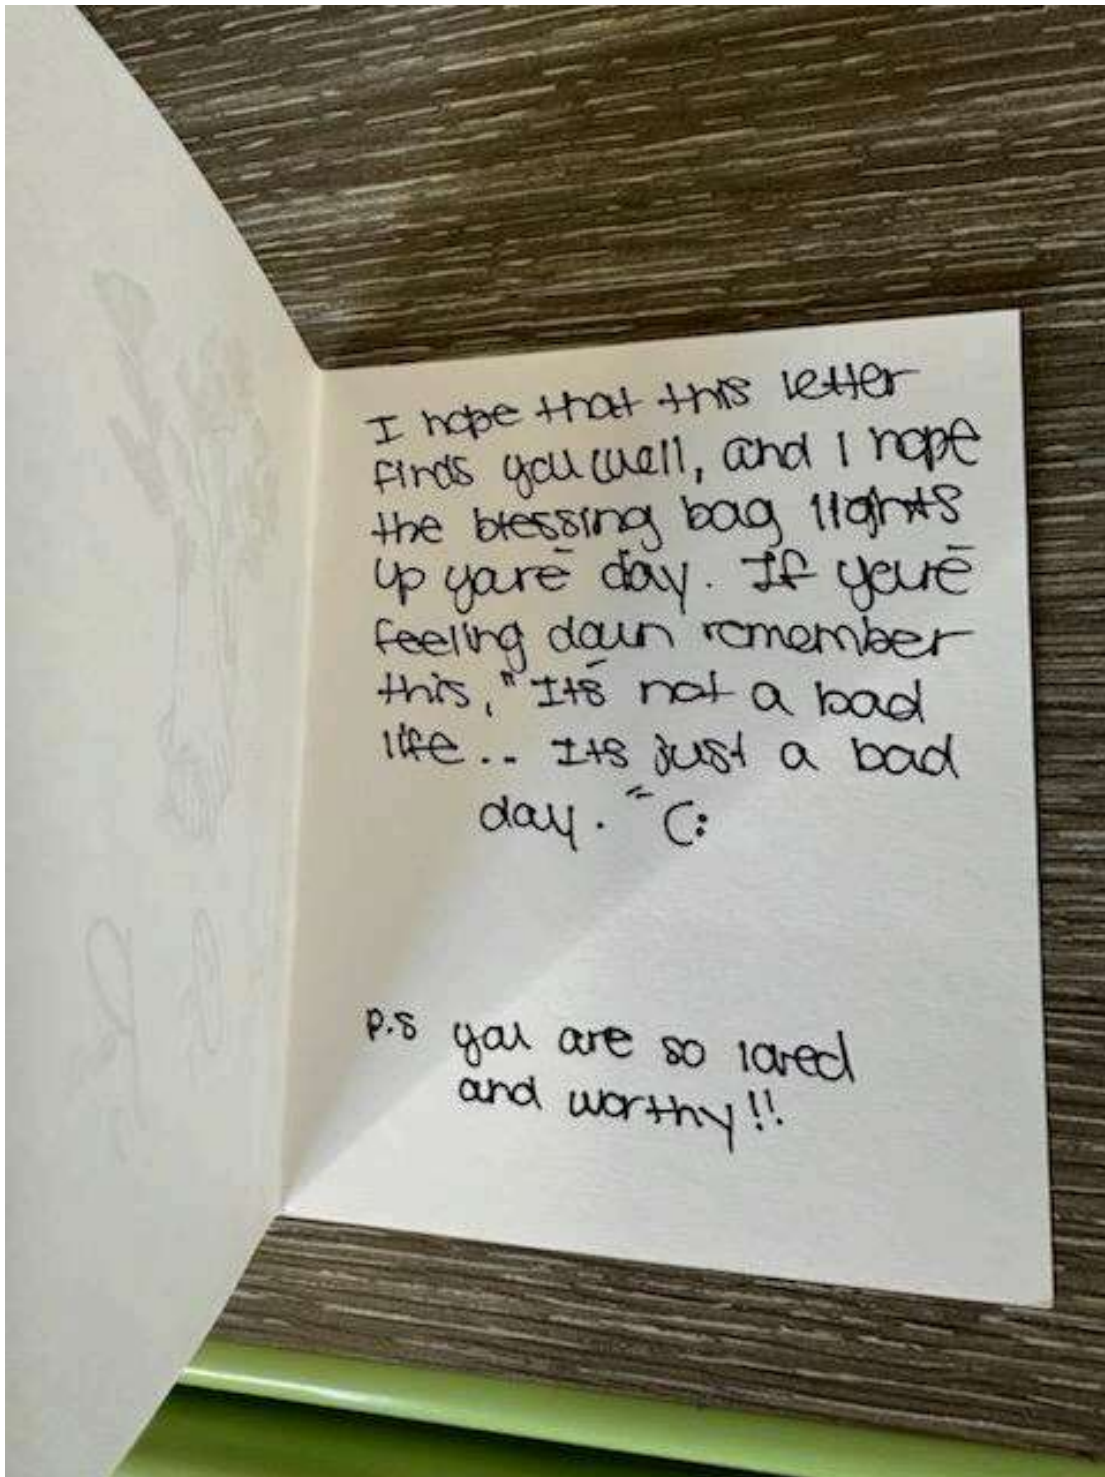 I hope that this letter
finds you well, and I hope
the blessing bag lights
up you're day. If you're
feeling down remember
this, "It's not a bad
life.. Its just a bad
day." (:
P.S you are so loved
and worthy!!